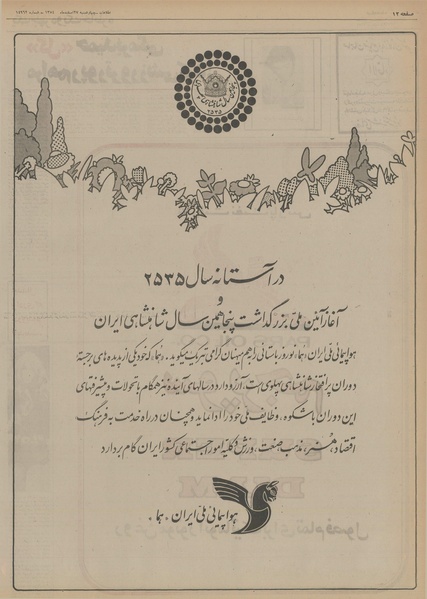 صفحه ۱۲
۲۵۳۵
در آستانه سال ۲۵۳۵
و
آغاز آئین ملی بزرگداشت پنجاهمین سال شاهنشاهی ایران
هواپیمائی ملی ایران «هما» نوروز باستانی را بهم میهنان گرامی تبریک میگوید. «هما» که خود یکی از پدیده های برجسته
دوران پرافتخار شاهنشاهی پهلوی است، آرزو دارد در سالهای آینده نیز همگام با تحولات و پیشرفتهای
این دوران باشکوه، وظایف ملی خود را ادا نماید و همچنان در راه خدمت به فرهنگ
اقتصاد، هنر، مذهب، صنعت، ورزش و کلیه امور اجتماعی کشور ایران گام بردارد
هواپیمائی ملی ایران «هما»